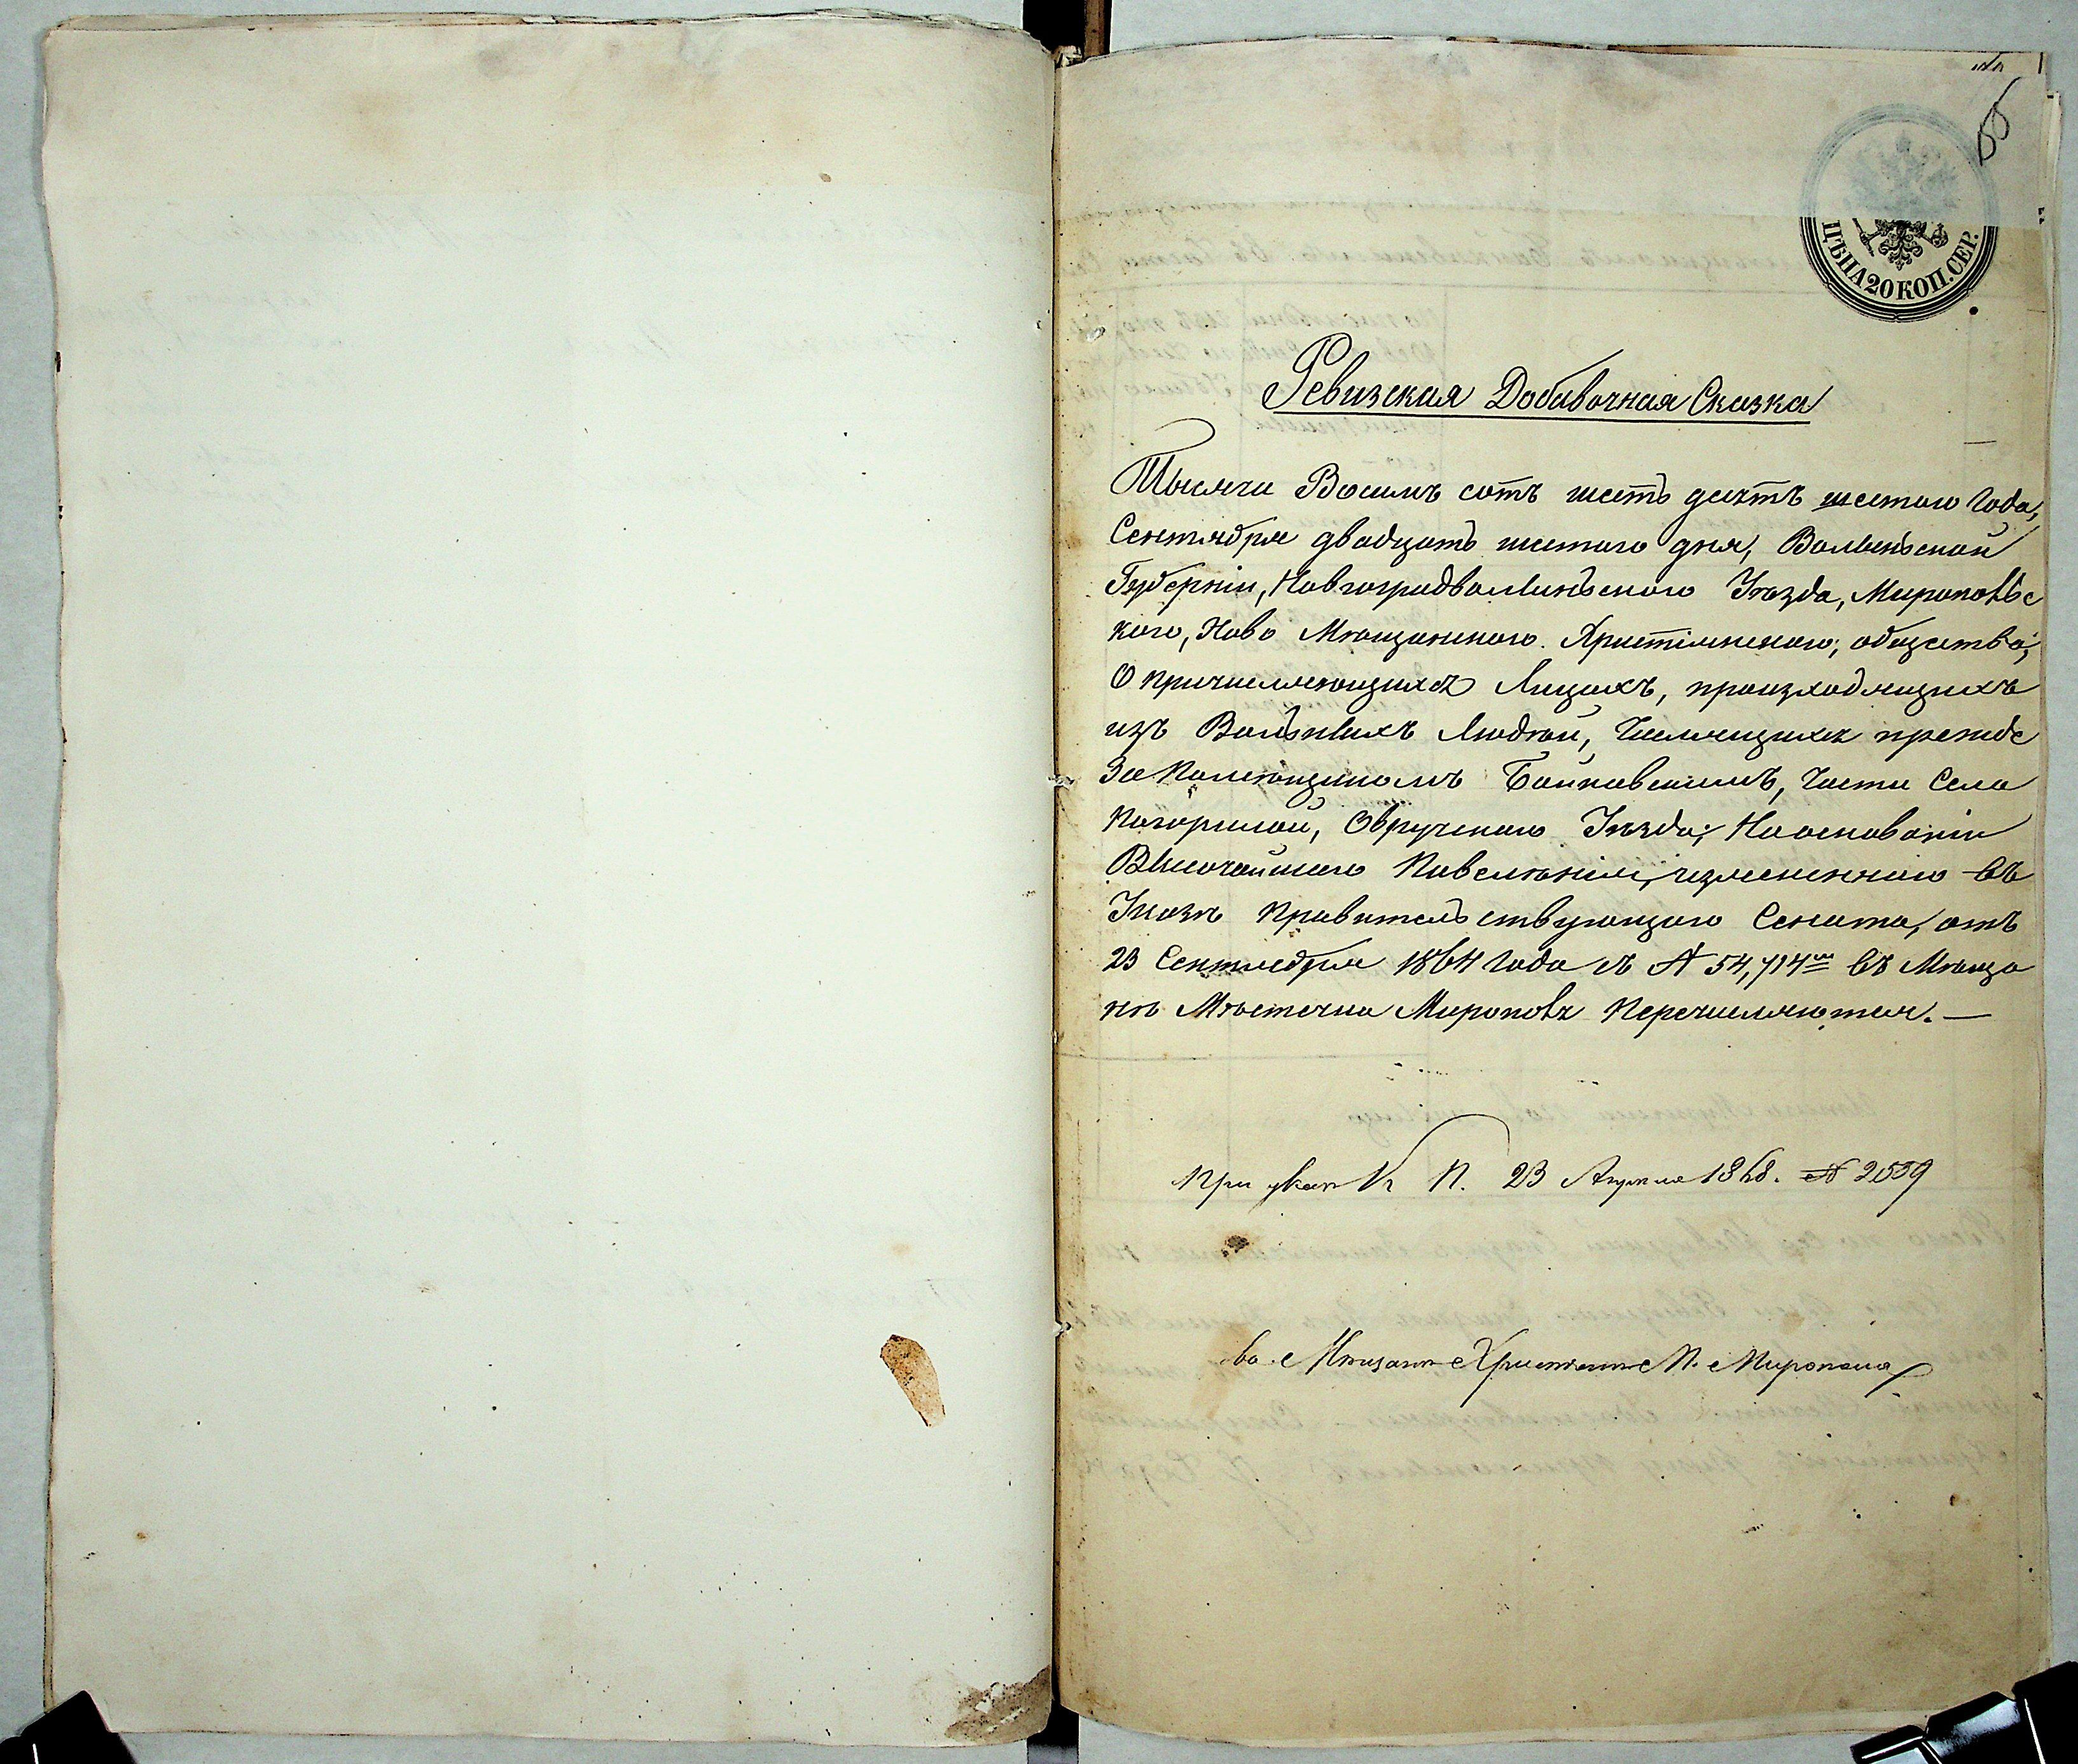 66
ЦѢНА 20 КОП. СЕР.
Ревизская Добавочная Сказка
Тысяча Восемь сотъ шесть десятъ шестого Года,
Сентября двадцать шестого дня, Волынской
Губерніи, Новгоградволинского Уѣзда, Миропольс
кого, Ново Мѣщанского Христіянского, общества,
О причисляющихся Лицахъ, произходящихъ
изъ Вольныхъ Людѣй, Числящихся прежде
За Помѣщикомъ Байковскимъ, Части Села
Погорилой, Овручского Уѣзда; На основаніи
Высочайшего Повелѣнія, изясненного въ
Указѣ Правительствующого Сената, отъ
23 Сентября 1864 Года съ № 54,714мъ въ Мѣща
нѣ Мѣстечка Мирополя Перечисляются.—
При указѣ К. П. 23 Апреля 1868. № 2539
Мѣщане Христіяне М. Мирополя